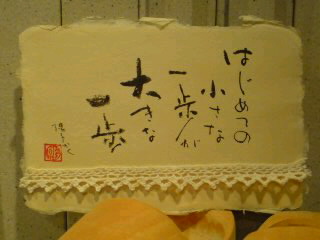 はじめての
小さな
一歩が
大きな
一歩